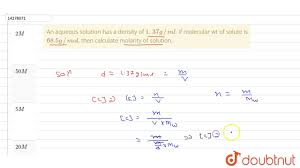 14278871
An aqueous solution has a density of 1.37g / ml. If molecular wt of solute is
68.5g / mol, then calculate molarity of solution.
2M
5M
10M
20M
Solⁿ
d = 1.37 g/ml = m/V
[C] = n/V
n = m/Mw
[C] = m/V × Mw
= m/
doubtnut